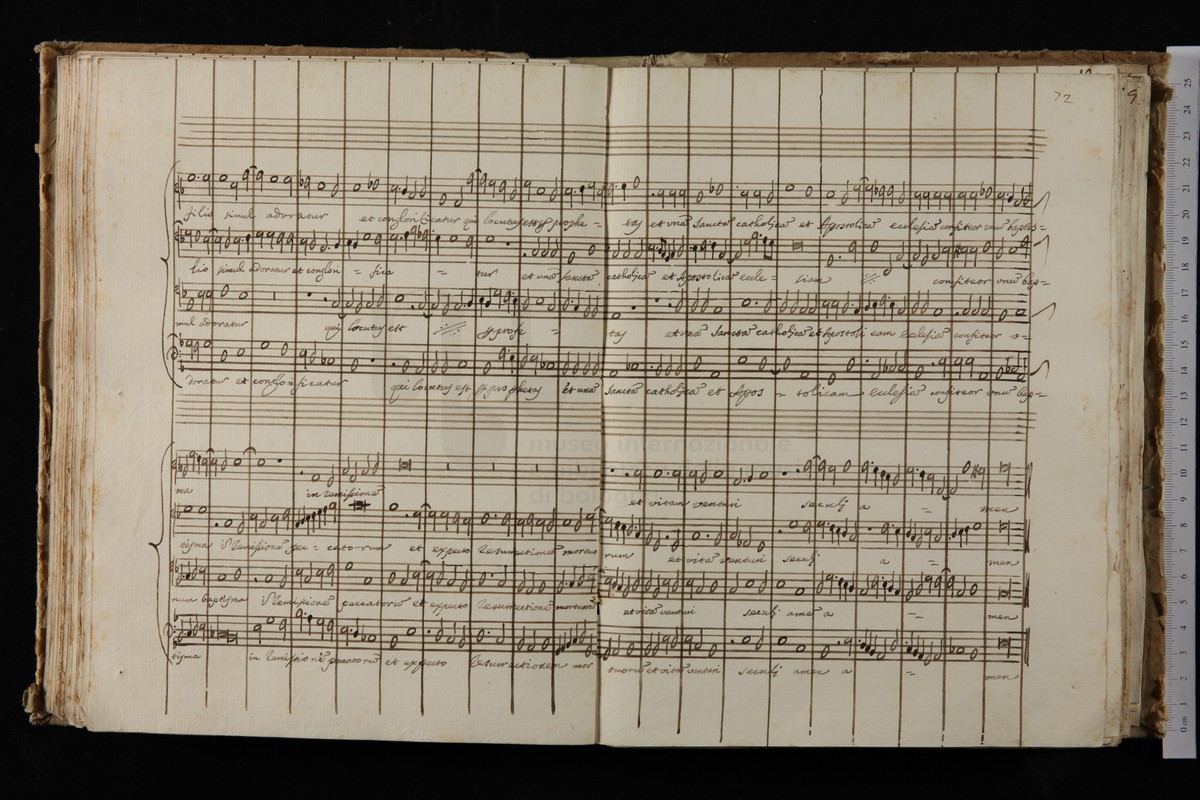 72
filio simul adoratur et conglorificatur qui locutus est per prophe = tas et unã Sanctã catholicã et Apostolicã eclesiã confiteor unũ baptis=
lio simul adoratur et conglori = fica = tur et unã sanctã catholicã et Apostolicã ecle = siam confiteor unũ bap=
mul adoratur qui locutus est profe = tas et unã Sanctã catholicã et Apostoli cam Eclesiã confiteor u=
doratur et conglorificatur qui locutus est pro phetas et unã Sanctã catholicã et Apos = tolicam Eclesiã confiteor unũ bap=
ma in remissionẽ et vitam venturi seculj a = men
tisma Remissionẽ pec= cato-rum et expecto Resurectionẽ mortuo rum et vitã venturi seculj a = men
num baptisma Remissionẽ peccatorũ et expecto Resurrectionẽ mortuorũ et vitã venturi seculj amẽ a = men
tisma in Remissionẽ peccatorũ et expecto Resurrectionem mor tuorũ et vitã venturi seculj amen a = men
museo internazionale
di bologna